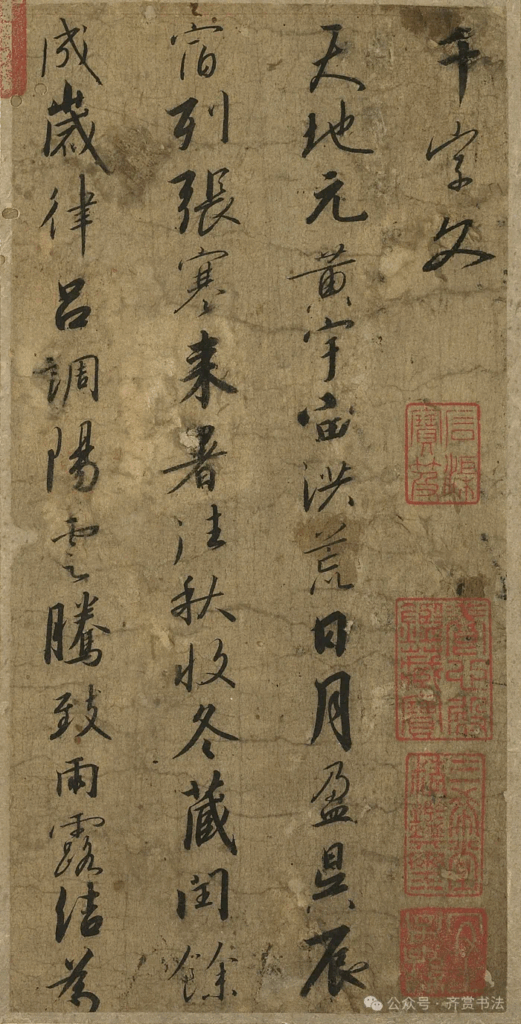 千字文
天地元黄宇宙洪荒日月盈昃辰
宿列張寒来暑往秋收冬蔵閏餘
成歲律呂調陽雲騰致雨露結為
公众号·齐赏书法